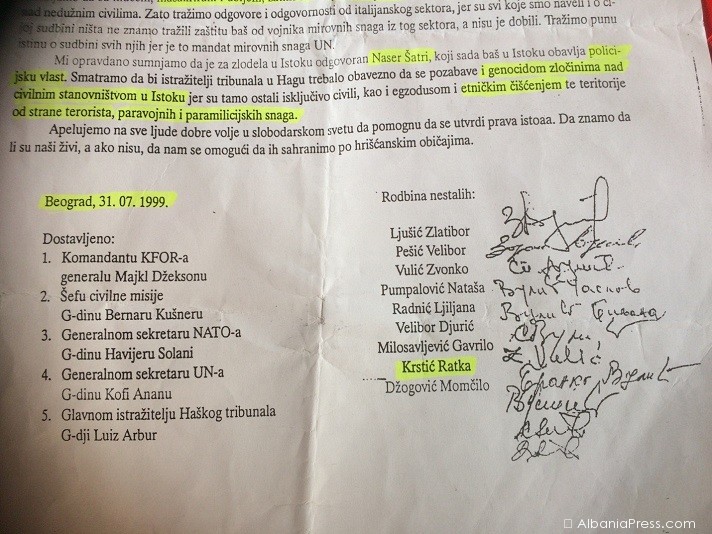 nad nedužnim civilima. Zato tražimo odgovore i odgovornosti od italijanskog sektora, jer su svi koje smo naveli i o či-
joj sudbini ništa ne znamo tražili zaštitu baš od vojnika mirovnih snaga iz tog sektora, a nisu je dobili. Tražimo punu
istinu o sudbini svih njih jer je to mandat mirovnih snaga UN.
Mi opravdano sumnjamo da je za zlodela u Istoku odgovoran Naser Šatri, koji sada baš u Istoku obavlja polici-
jsku vlast. Smatramo da bi istražitelji tribunala u Hagu trebalo obavezno da se pozabave i genocidom zločinima nad
civilnim stanovništvom u Istoku jer su tamo ostali isključivo civili, kao i egzodusom i etničkim čišćenjem te teritorije
od strane terorista, paravojnih i paramilicijskih snaga.
Apelujemo na sve ljude dobre volje u slobodarskom svetu da pomognu da se utvrdi prava istoaa. Da znamo da
li su naši živi, a ako nisu, da nam se omogući da ih sahranimo po hrišćanskim običajima.
Beograd, 31. 07. 1999.
Dostavljeno:
1. Komandantu KFOR-a
generalu Majkl Džeksonu
2. Šefu civilne misije
G-dinu Bernaru Kušneru
3. Generalnom sekretaru NATO-a
G-dinu Havijeru Solani
4. Generalnom sekretaru UN-a
G-dinu Kofi Ananu
5. Glavnom istražitelju Haškog tribunala
G-dji Luiz Arbur
Rodbina nestalih:
Ljušić Zlatibor
Pešić Velibor
Vulić Zvonko
Pumpalović Nataša
Radnić Ljiljana
Velibor Djurić
Milosavljević Gavrilo
Krstić Ratka
Džogović Momčilo
AlbaniaPress.com